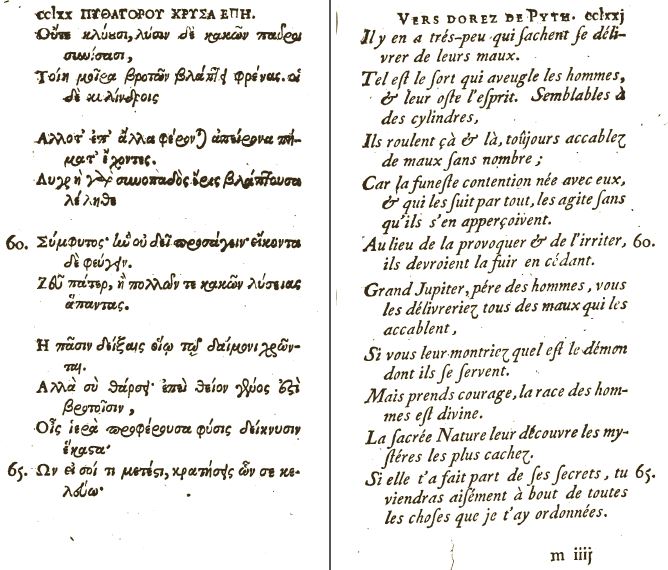 cclxx ΠΥΘΑΓΟΡΟΥ ΧΡΥΣΑ ΕΠΗ.
Οὔτε κλύουσι, λύσιν δὲ κακῶν παῦροι
συνίσασι,
Τοίη μοῖρα βροτῶν βλάπτει φρένας. οἱ
δὲ κυλίνδροις
Αλλοτ' ἐπ' ἄλλα φέρονται ἀπείρονα πή-
ματ' ἔχοντες.
Λυγρὴ γὰρ συνοπαδὸς ἔρις βλάπτουσα
λέληθε
60. Σύμφυτος· ἣν οὐ δεῖ προσάγειν· εἴκοντα
δὲ φεύγειν.
Ζεῦ πάτερ, ἢ πολλῶν τε κακῶν λύσειας
ἅπαντας.
Η πᾶσιν δείξαις οἵῳ τῷ δαίμονι χρῶν-
ται.
Αλλὰ σὺ θάρσει· ἐπεὶ θεῖον γένος ἐστὶ
βροτοῖσιν,
Οἷς ἱερὰ προφέρουσα φύσις δείκνυσιν
ἕκαστα·
65. Ων εἴ σοί τι μετέστι, κρατήσεις ὧν σε κε-
λεύω·
VERS DOREZ DE PYTH. cclxxj
Il y en a trés-peu qui sachent se déli-
vrer de leurs maux.
Tel est le sort qui aveugle les hommes,
& leur oste l'esprit. Semblables à
des cylindres,
Ils roulent çà & là, toûjours accablez
de maux sans nombre ;
Car la funeste contention née avec eux,
& qui les suit par tout, les agite sans
qu'ils s'en apperçoivent.
Au lieu de la provoquer & de l'irriter, 60.
ils devroient la fuir en cédant.
Grand Jupiter, pére des hommes, vous
les délivreriez tous des maux qui les
accablent,
Si vous leur montriez quel est le démon
dont ils se servent.
Mais prends courage, la race des hom-
mes est divine.
La sacrée Nature leur découvre les my-
stéres les plus cachez.
Si elle t'a fait part de ses secrets, tu 65.
viendras aisément à bout de toutes
les choses que je t'ay ordonnées.
m iiij